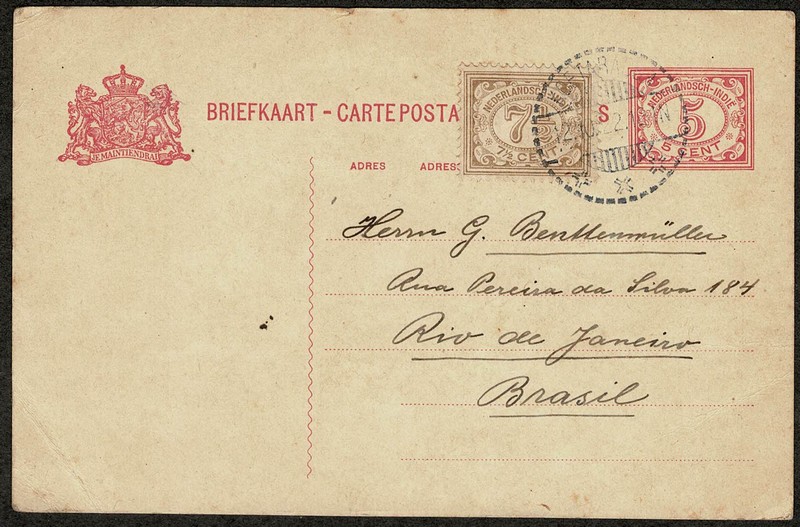 BRIEFKAART - CARTE POSTA
JE MAINTIENDRAI
NEDERLANDSCH-INDIË
7½
7½ CENT
NEDERLANDSCH-INDIË
5
5 CENT
ADRES ADRES
Herrn G. Benttenmüller
Rua Pereira da Silva 184
Rio de Janeiro
Brasil